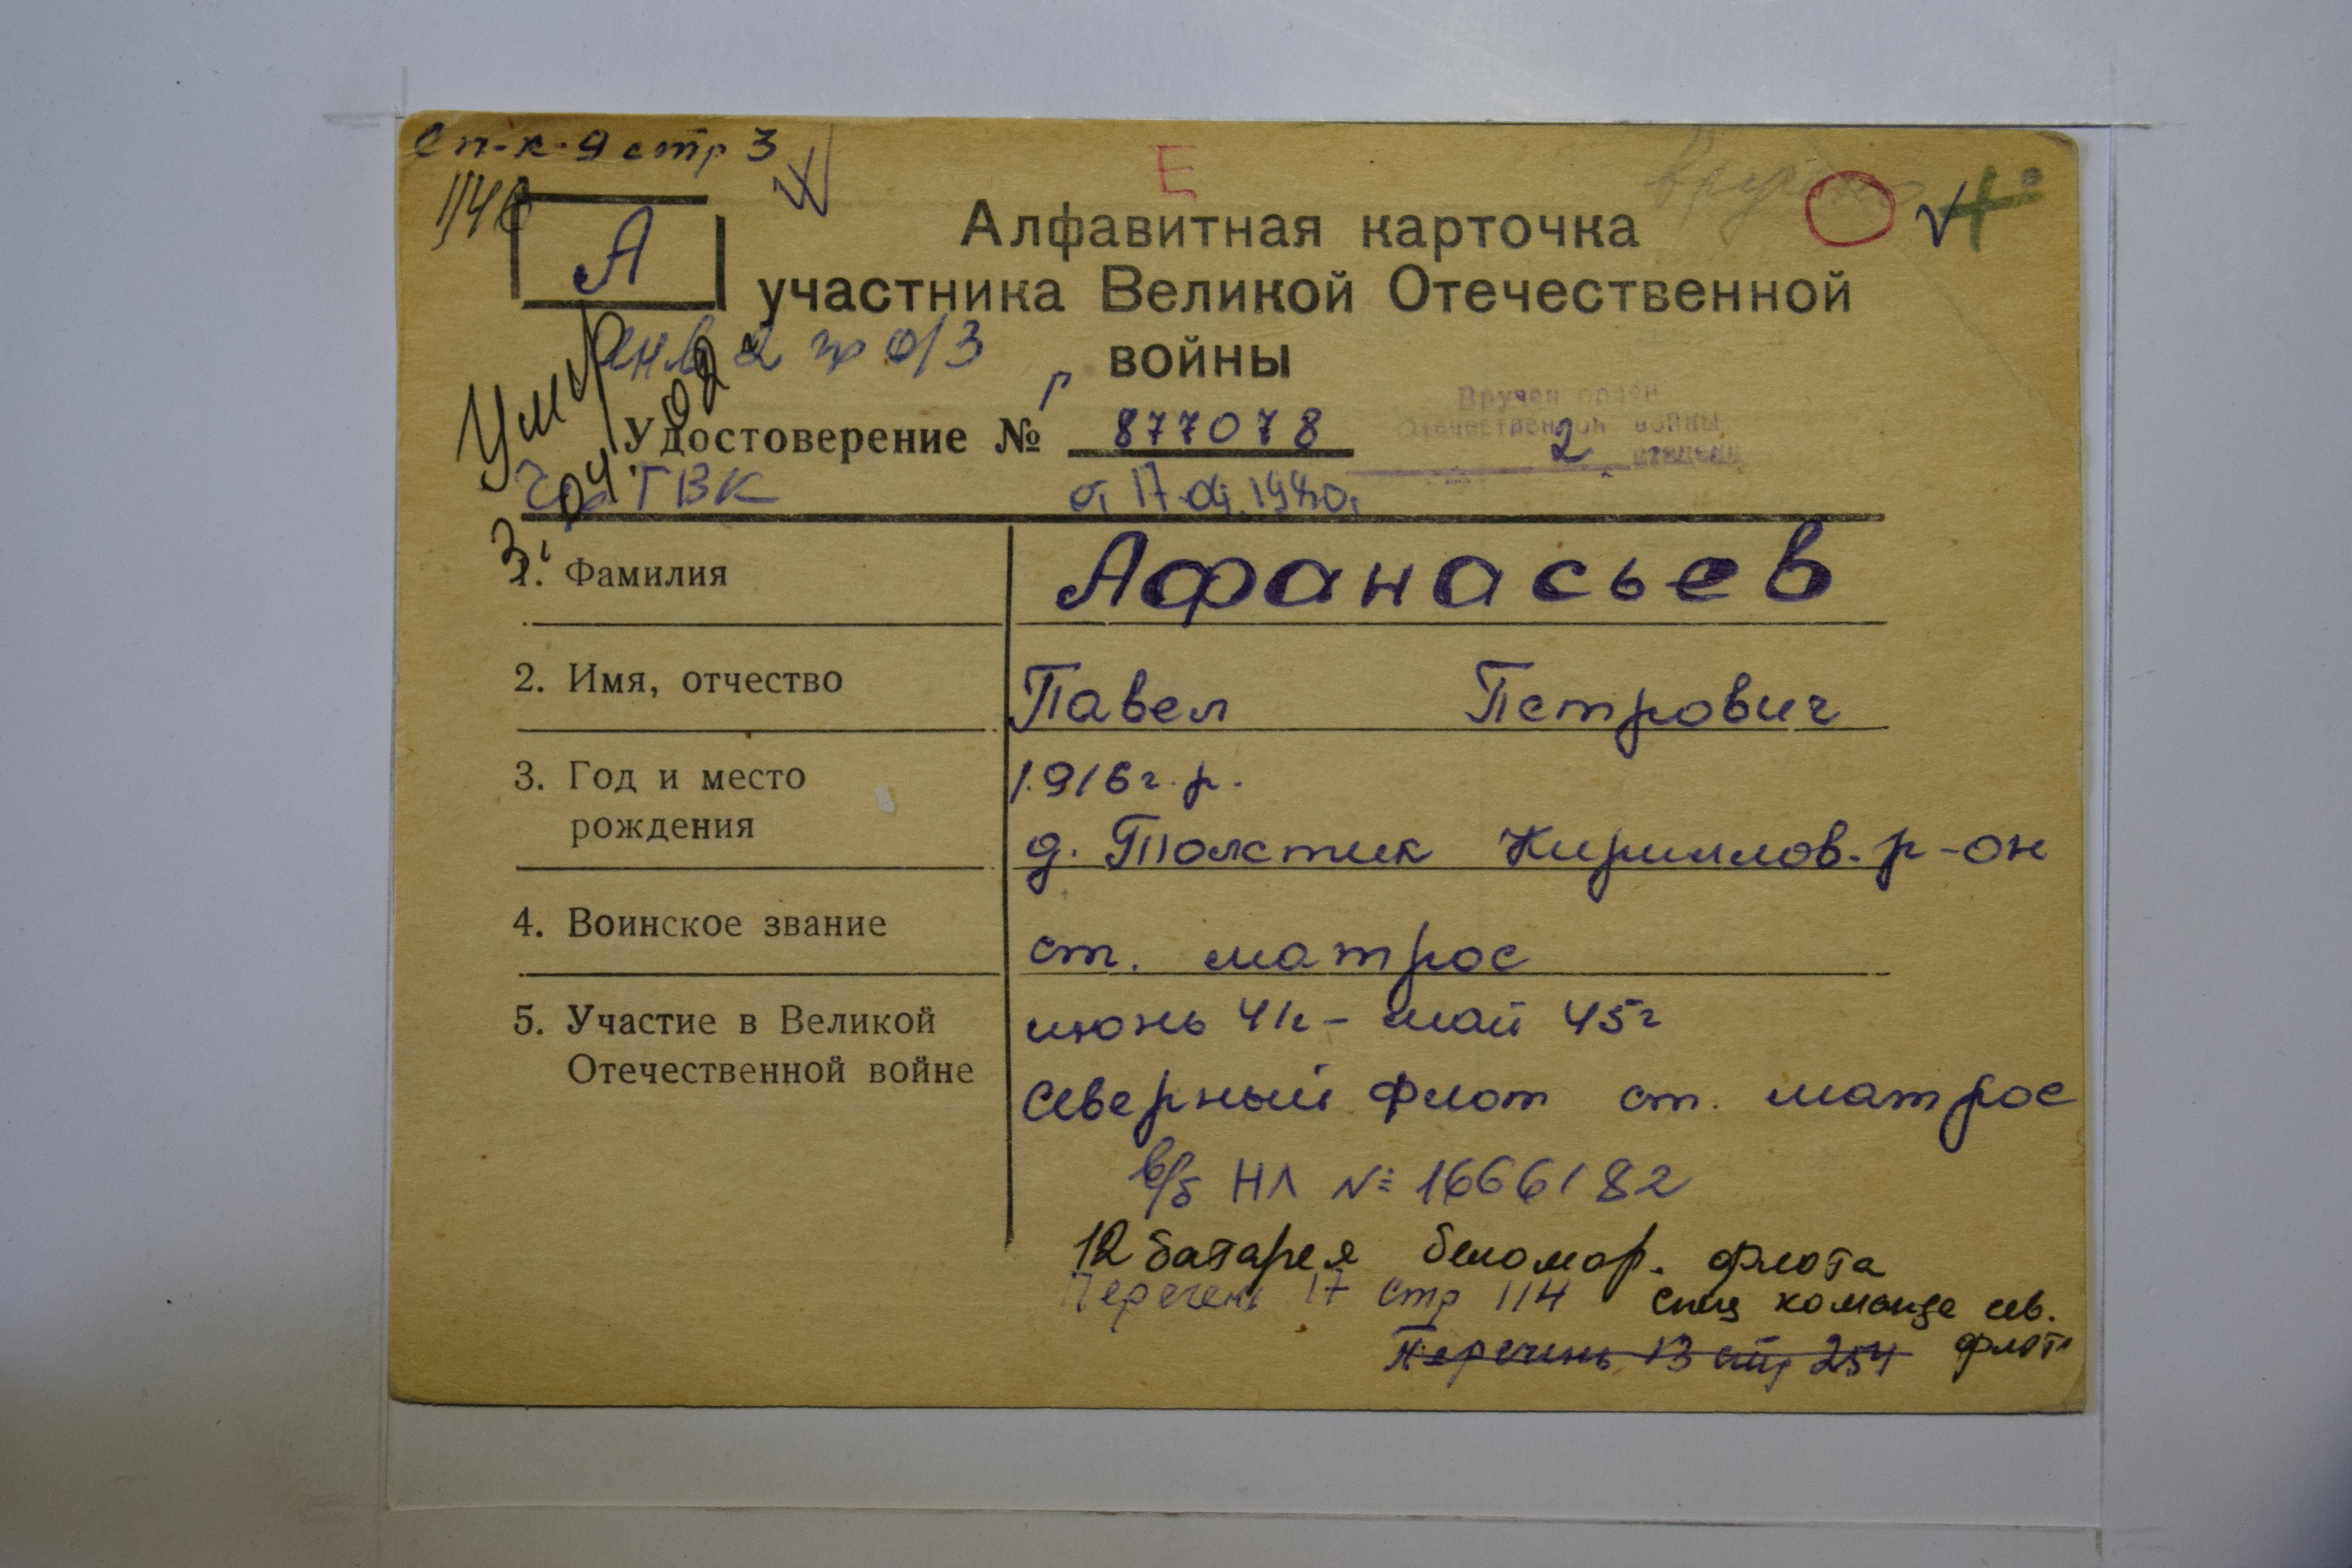 Сп-к-9 стр 3
1146
Е
вручено
А
Алфавитная карточка
участника Великой Отечественной
войны
инв 2 гр о/з
Умер
3.04.02
Вручен орден
Отечественной войны
2 степени
Удостоверение № р 877078
ГВК
1. Фамилия
Афанасьев
2. Имя, отчество
Павел Петрович
3. Год и место
рождения
1916 г.р.
д. Толстик Кириллов. р-он
4. Воинское звание
ст. матрос
5. Участие в Великой
Отечественной войне
июнь 41г - май 45г
Северный Флот ст. матрос
в/б НЛ № 1666182
12 батарея беломор. флота
Перечень 17 стр 114
спец команде сев.
флота
Перечень 13 стр 254